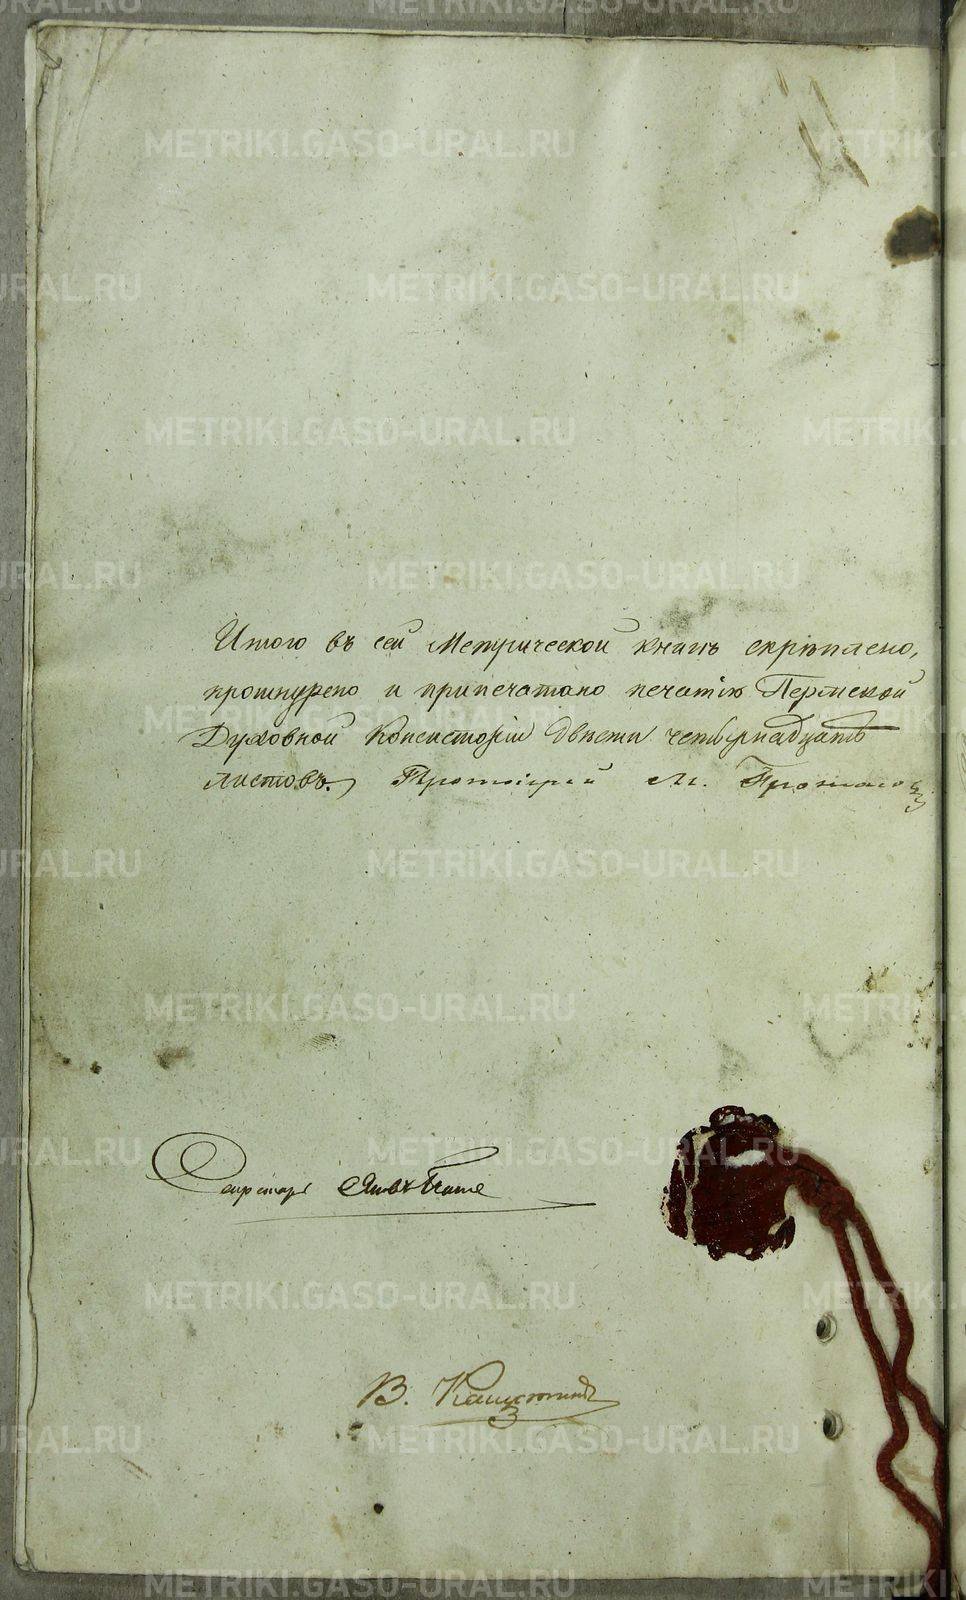 Итого въ сей Метрической книгѣ скрѣплено,
прошнурено и припечатано печатію Пермской
Духовной Консисторіи двѣсти четырнадцать
листовъ. Протоіерей М.
Секретарь
В. Капустинъ
METRIKI.GASO-URAL.RU